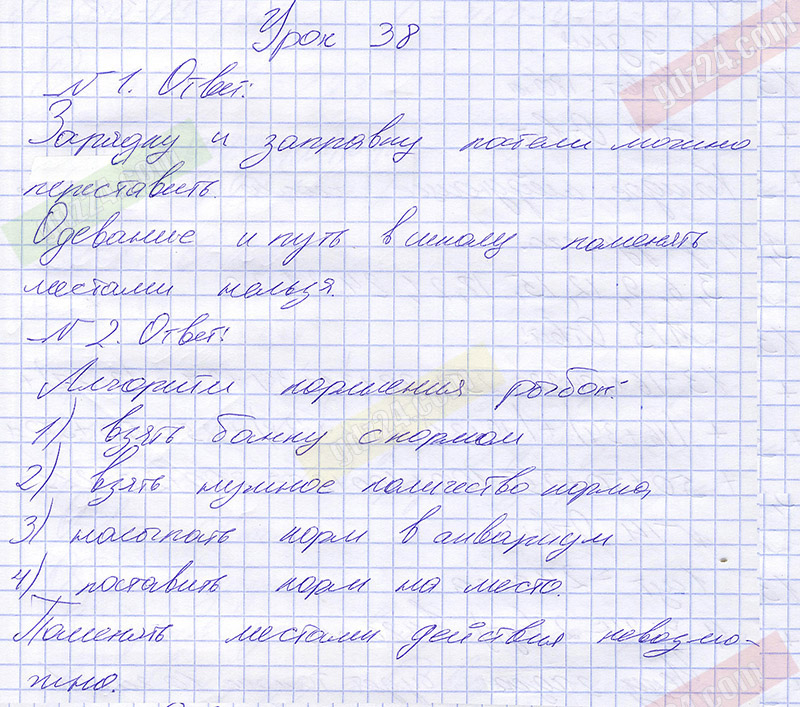 Урок 38
N 1. Ответ:
Зарядку и заправку постели можно
переставить.
Одевание и путь в школу поменять
местами нельзя.
N 2. Ответ:
Алгоритм кормления рыбок:
1) взять банку с кормом
2) взять нужное количество корма,
3) насыпать корм в аквариум
4) поставить корм на место.
Поменять местами действия невозмо-
жно.
gdz24.com
gdz24.com
gdz24.com